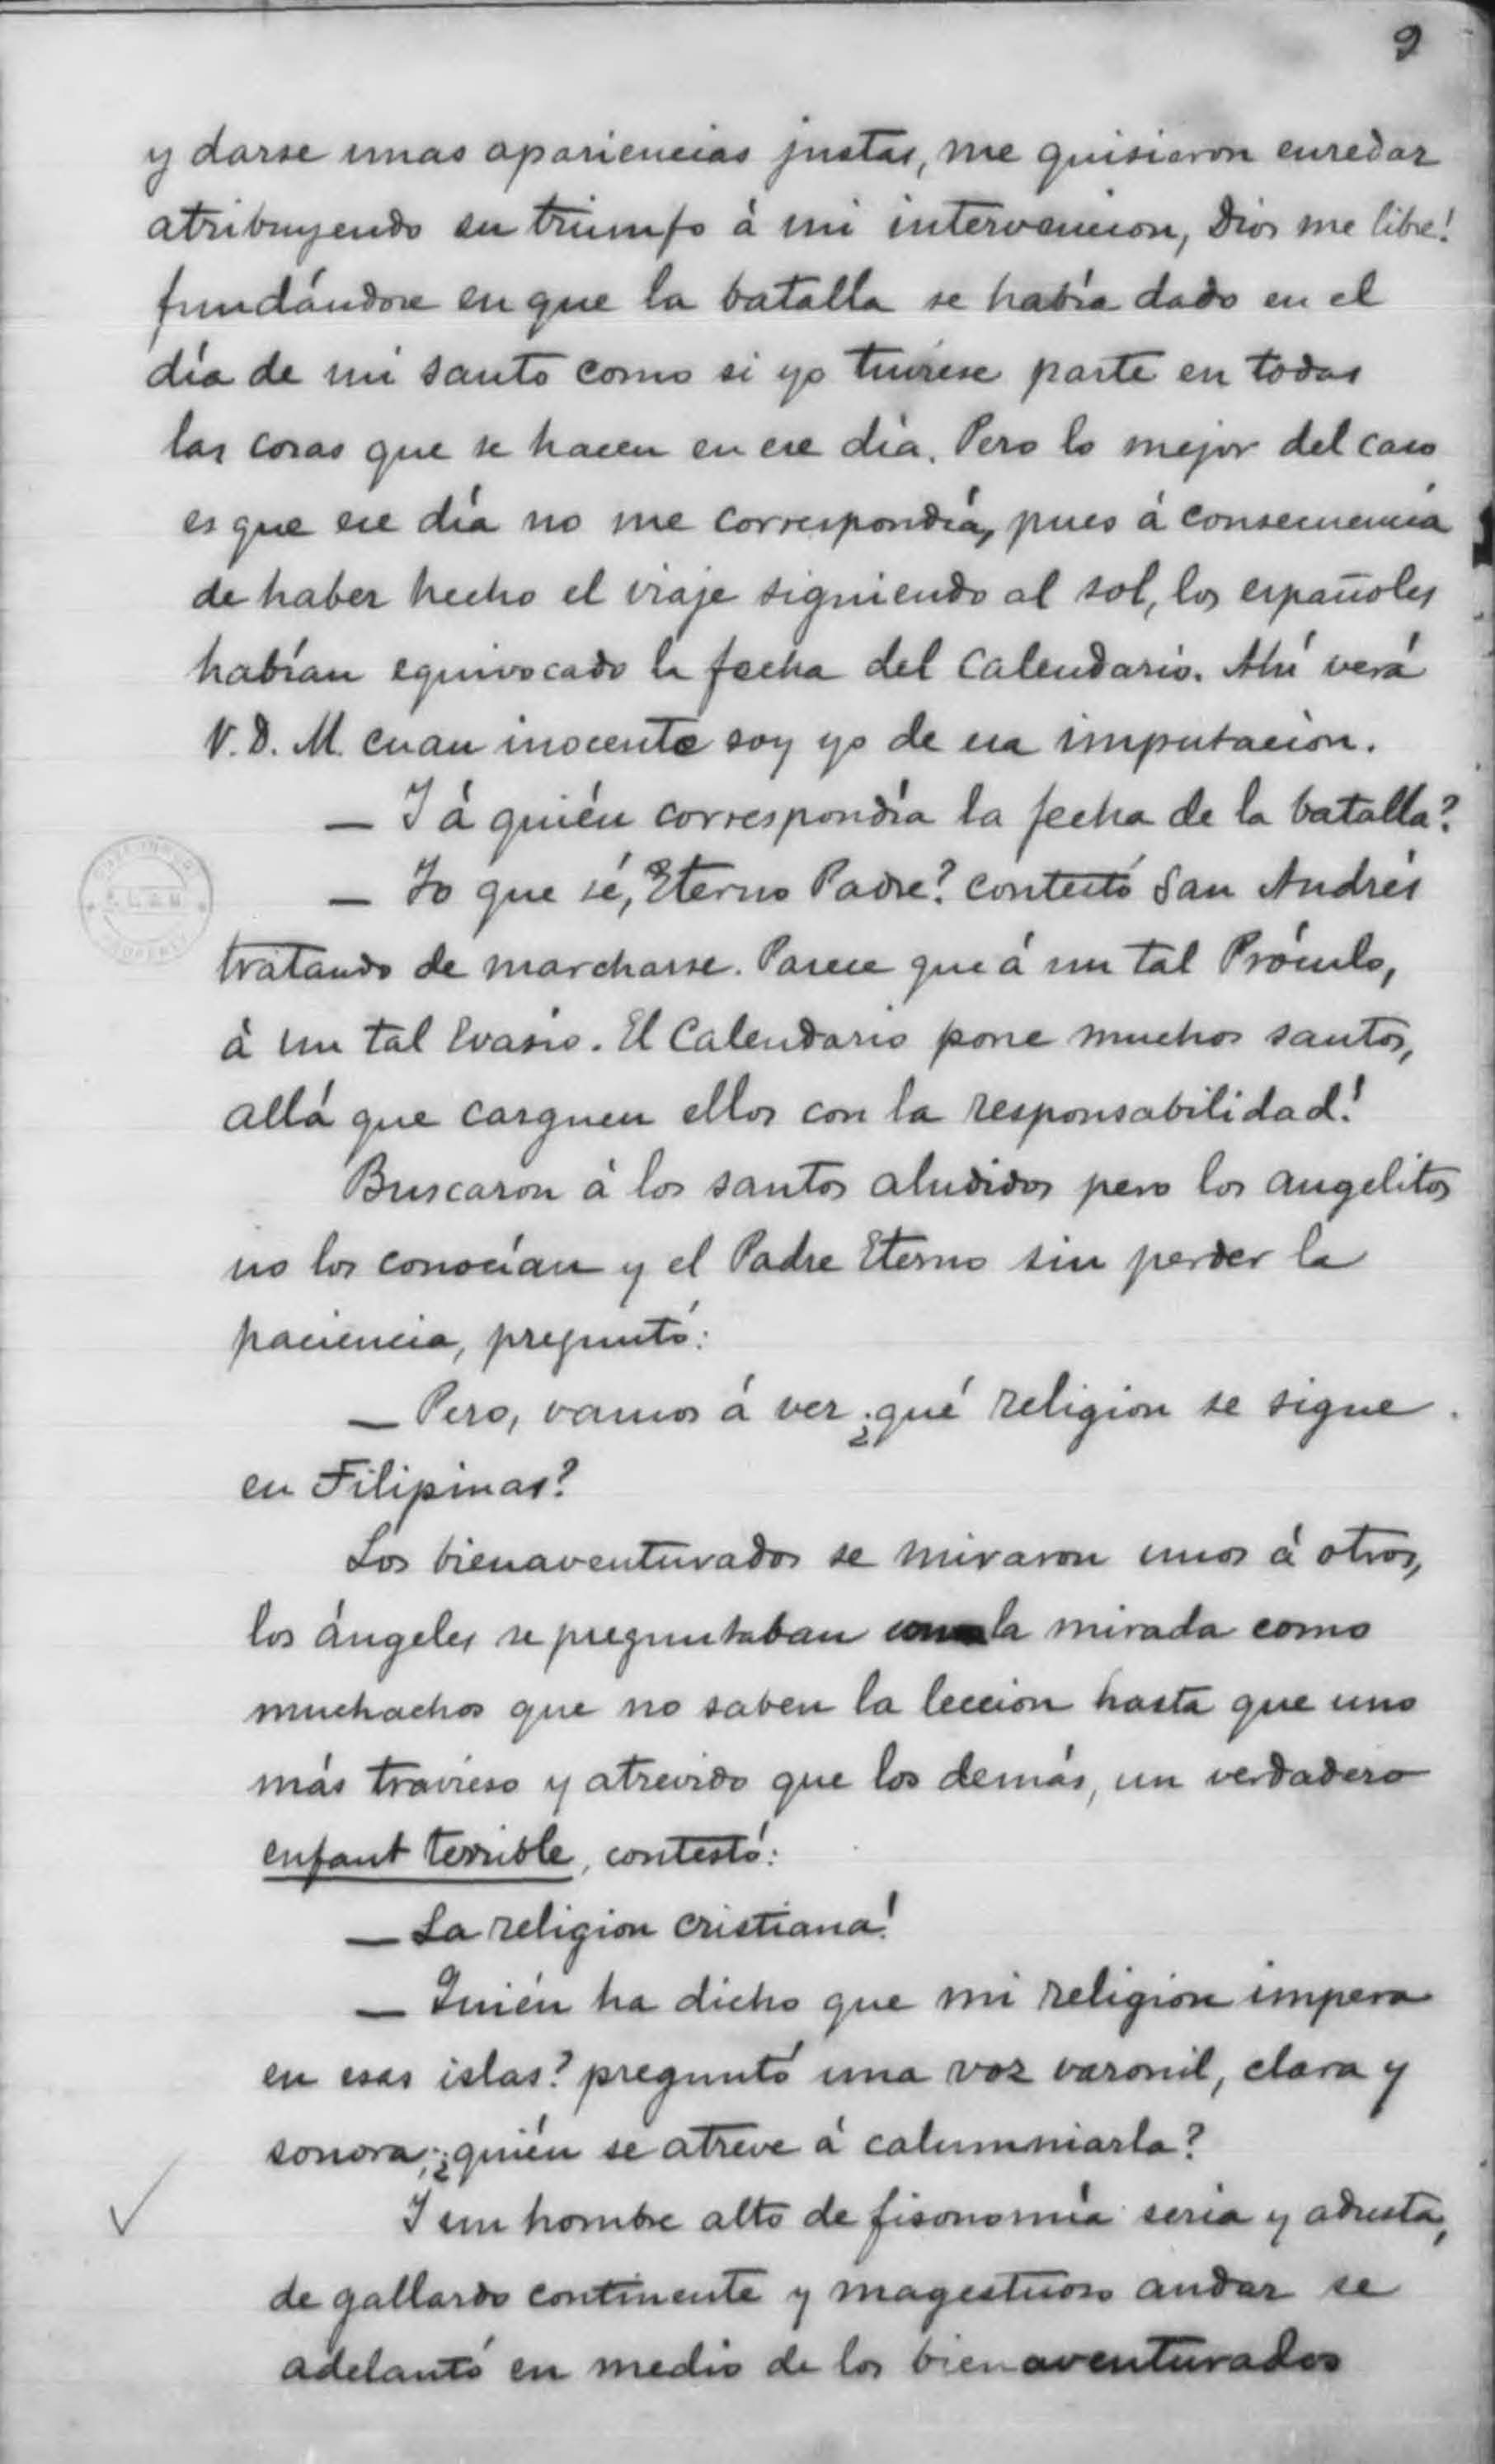 9
y darse unas apariencias justas, me quisieron enredar
atribuyendo su triumfo á mi intervencion, Dios me libre!
fundándose en que la batalla se había dado en el
día de mi santo como si yo tuviese parte en todas
las cosas que se hacen en ese día. Pero lo mejor del caso
es que ese día no me correspondía, pues á consecuencia
de haber hecho el viaje siguiendo al sol, los españoles
habían equivocado la fecha del Calendario. Ahí verá
V. D. M. cuan inocente soy yo de esa imputación.
— Y á quién correspondía la fecha de la batalla?
— Yo que sé, Eterno Padre? contestó San Andrés
tratando de marcharse. Parece que á un tal Próculo,
á un tal Evasio. El Calendario pone muchos santos,
allá que carguen ellos con la responsabilidad!
Buscaron á los santos aludidos pero los angelitos
no los conocían y el Padre Eterno sin perder la
paciencia, preguntó:
— Pero, vamos á ver ¿qué religion se sigue
en Filipinas?
Los bienaventurados se miraron unos á otros,
los ángeles se preguntaban con la mirada como
muchachos que no saben la leccion hasta que uno
más travieso y atrevido que los demás, un verdadero
enfant terrible, contestó:
— La religion cristiana!
— Quién ha dicho que mi religion impera
en esas islas? preguntó una voz varonil, clara y
sonora; ¿quién se atreve á calumniarla?
Y un hombre alto de fisonomía seria y adusta,
de gallardo continente y magestuoso andar se
adelantó en medio de los bienaventurados
PROPERTY